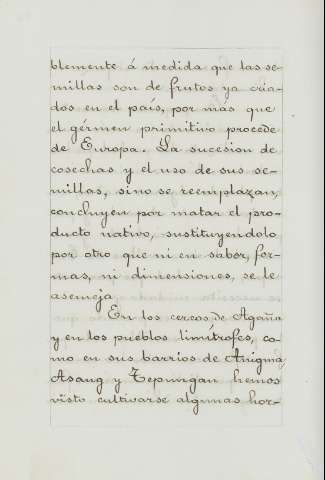 blemente á medida que las se-
millas son de frutos ya cria-
dos en el país, por más que
el gérmen primitivo procede
de Europa. La sucesion de
cosechas y el uso de sus se-
millas, sino se reemplazan,
concluyen por matar el pro-
ducto nativo, sustituyendolo
por otro que ni en sabor, for-
mas, ni dimensiones, se le
asemeja.
En los cercos de Agaña
y en los pueblos limítrofes, co-
mo en sus barrios de Anigua,
Asang y Tepungan hemos
visto cultivarse algunas hor-